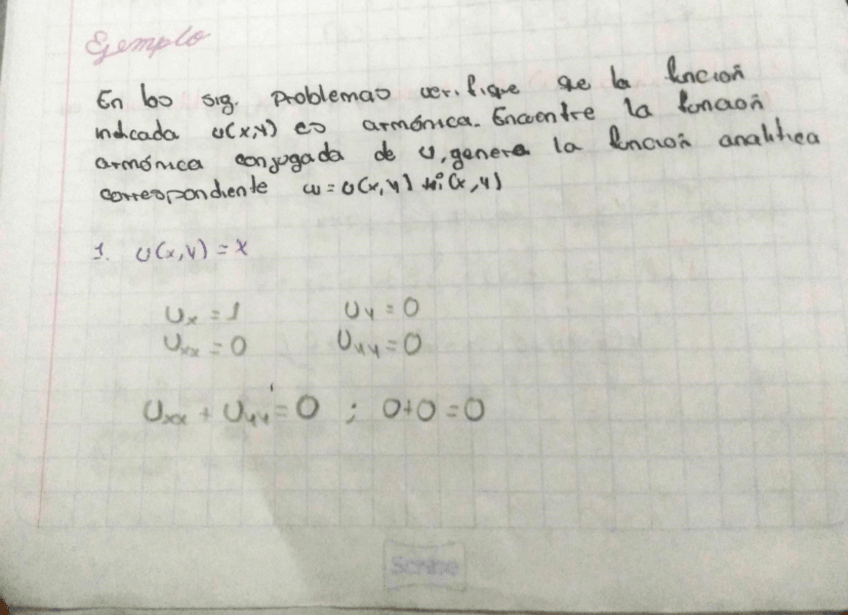 Ejemplo
En los sig. problemas verifique que la función
indicada u(x,y) es armónica. Encuentre la función
armónica conjugada de u, genere la función analítica
correspondiente w = u(x,y) + i (x,y)
1. u(x,y) = x
Ux = 1 Uy = 0
Uxx = 0 Uyy = 0
Uxx + Uyy = 0 ; 0+0 = 0
Scribe